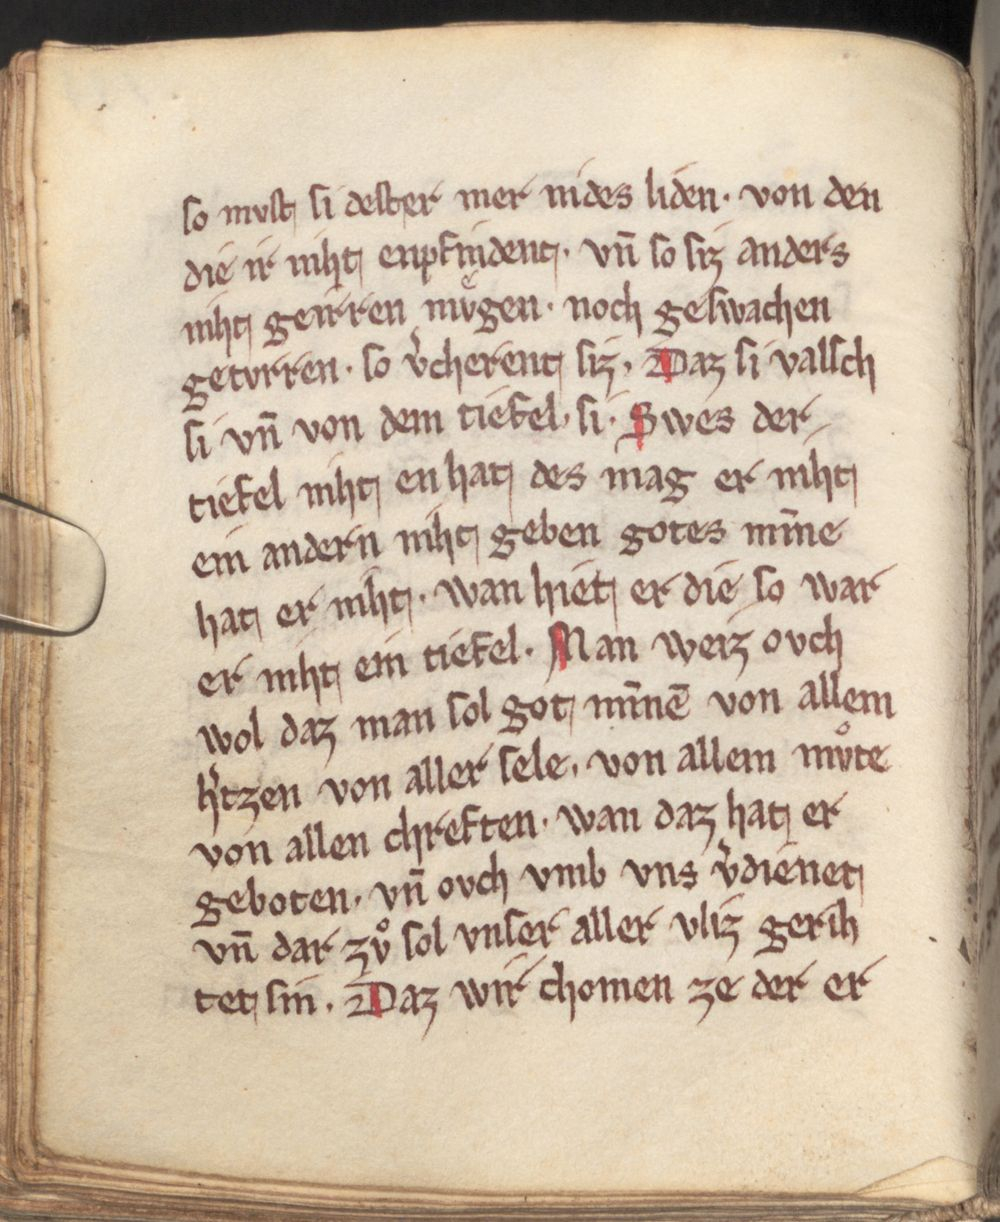 so mvst si dester mer nides liden · von den
die ir niht enpfindent · vn̄ so siz anders
niht geirren mvͤgen · noch geswachen
geturren · so v̓cherent siz · Daz si valsch
si vn̄ von dem tiefel · si · Swes der
tiefel niht en hat des mag er niht
ein andern niht geben gotes mīne
hat er niht · wan hiet er die so war
er niht ein tiefel · Man weiz ovch
wol daz man sol got mīnē von allem
h̓tzen von aller sele · von allem mvͦte
von allen chreften · wan daz hat er
geboten · vn̄ ovch vmb vns v̓dienet
vn̄ dar zvͦ sol vnser aller vliz gerih
tet sin · Daz wir chomen ze der er